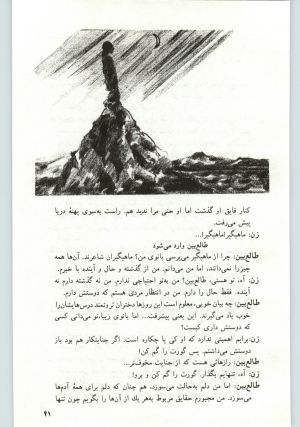 کنار قایق او گذشت اما او حتی مرا ندید هم. راست به‌سوی پهنهٔ دریا
پیش می‌رفت.
زن: ماهیگیر!ماهیگیر!...
طالع‌بین وارد می‌شود
طالع‌بین: چرا از ماهیگیر می‌پرسی بانوی من؟ ماهیگیران شاعرند. آن‌ها همه
چیزرا نمی‌دانند، اما من می‌دانم. من از گذشته و حال و آینده با خبرم.
زن: آه، تو هستی، طالع‌بین؟ من به‌تو احتیاجی ندارم. من نه گذشته دارم نه
آینده. فقط حال را دارم. من در انتظار مردی هستم که دوستش دارم.
طالع‌بین: چه بیان خوبی، معلوم است این روزها دختران ثروتمند درس‌هایشان‌را
خوب یاد می‌گیرند. این یعنی پیشرفت... اما بانوی زیبا، تو می‌دانی کسی
که دوستش داری کیست؟
زن: برایم اهمیتی ندارد که او کی یا چکاره است. اگر جنایتکار هم بود باز
دوستش می‌داشتم. پس گورت را گم کن!
طالع‌بین: رازهائی هست که از جنایت مخوف‌تر...
زن: آه، تنهایم بگذار. گورت را گم کن و برو!
طالع‌بین: اما من دلم به‌حالت می‌سوزد، هم چنان که دلم برای همهٔ آدم‌ها
می‌سوزد. من مجبورم حقایق مربوط به‌هر یك از آن‌ها را بگویم چون تنها
۴۱